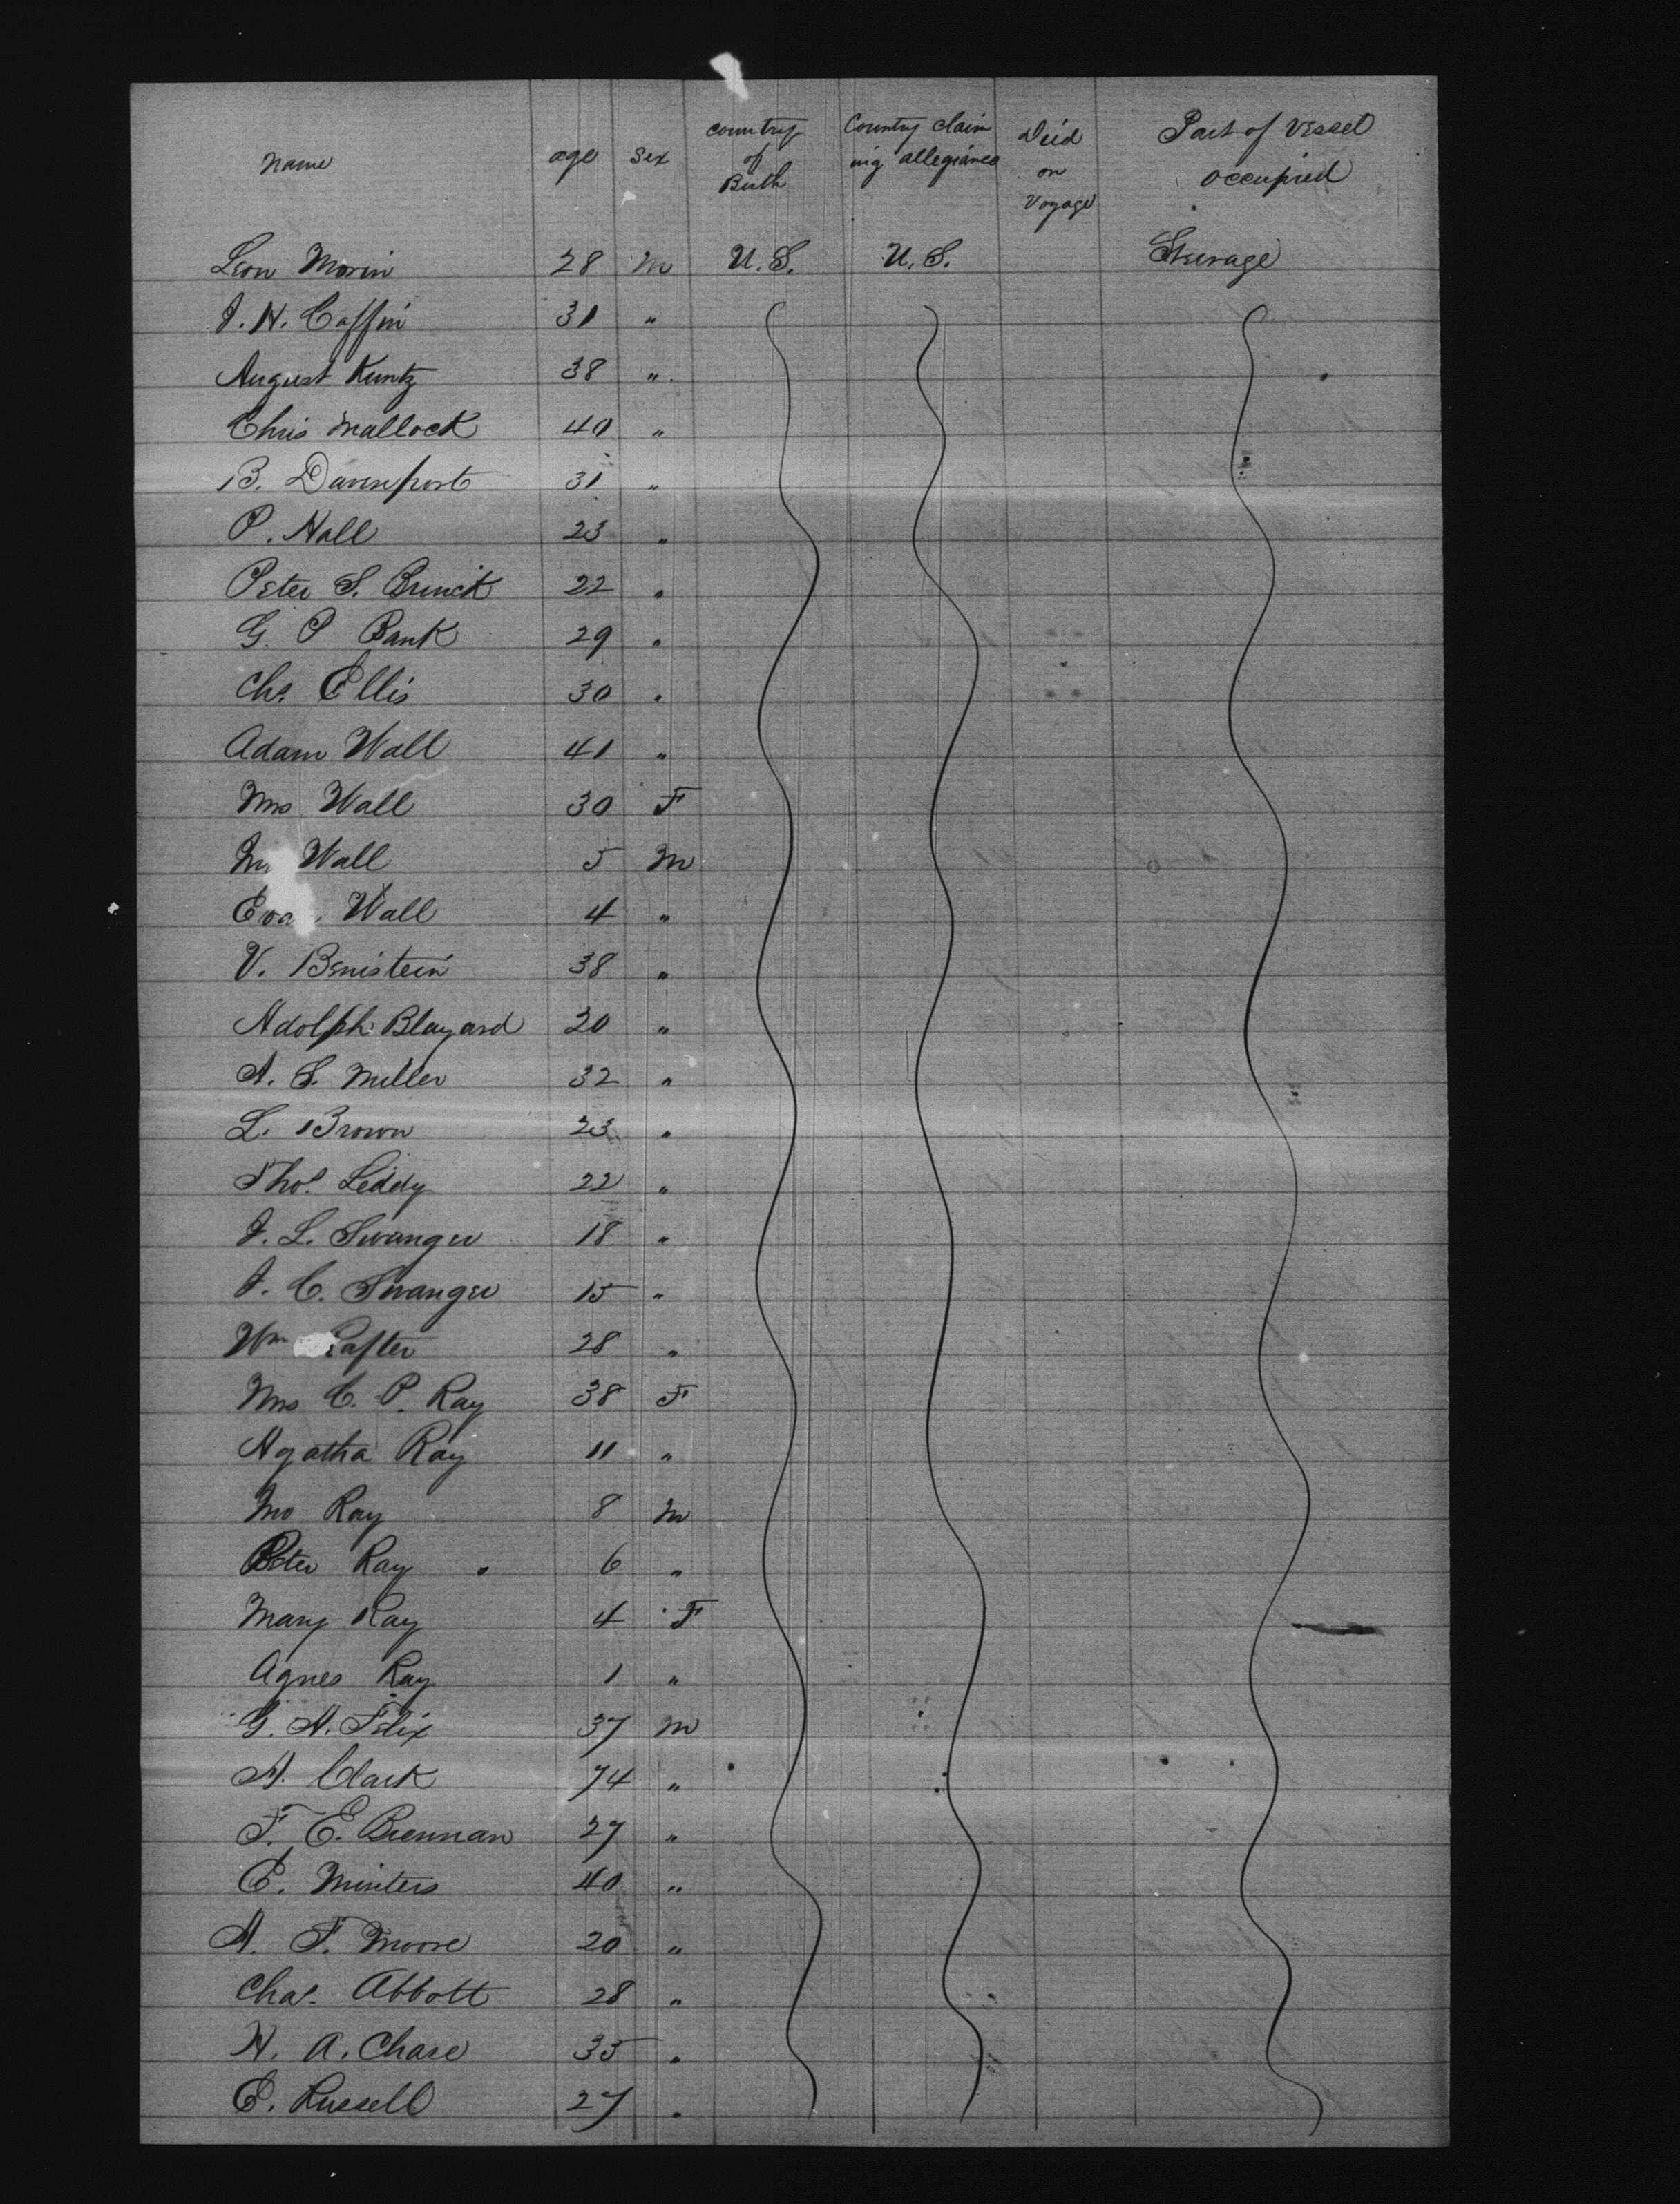 Name age Sex Country of Birth Country claiming allegiance Died on Voyage Part of Vessel occupied
Leon Morin 28 M U.S. U.S. Steerage
J. H. Caffin 31 "
August Kuntz 38 "
Chris Mallock 40 "
B. Davenport 31 "
P. Hall 23 "
Peter S. Brinck 22 "
G. P Bank 29 "
Chs. Ellis 30 "
Adam Wall 41 "
Mrs Wall 30 F
Wall 5 M
Eva Wall 4 "
V. Benistein 38 "
Adolph Blayard 20 "
A. S. Miller 32 "
L. Brown 23 "
Thos. Leddy 22 "
J. L. Swanger 18 "
J. C. Swanger 15 "
Wm Rafter 28 "
Mrs C. P. Ray 38 F
Agatha Ray 11 "
Ray 8 M
Peter Ray 6 "
Mary Ray 4 F
Agnes Ray 1 "
G. A. Felix 37 M
A. Clark 74 "
F. E. Brennan 27 "
E. Minters 40 "
A. F. Moore 20 "
Chas. Abbott 28 "
H. A. Chase 35 "
E. Russell 27 "